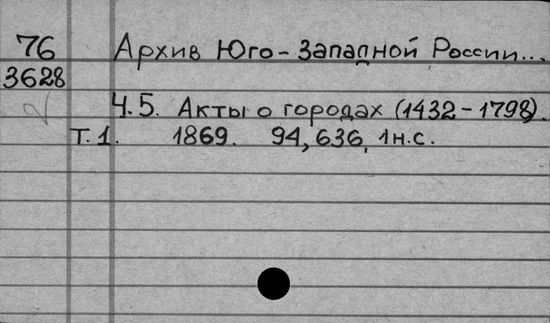 76 Архив Юго-Западной России...
3628
Ч.5. Акты о городах (1432-1798).
Т.1. 1869. 94, 636, 1н.с.